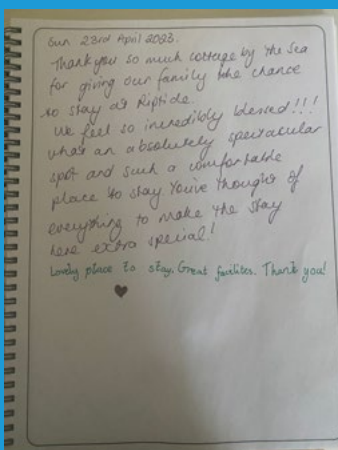 Sun 23rd April 2023.
Thank you so much cottage by the Sea
for giving our family the chance
to stay at Riptide.
We feel so incredibly blessed!!!
what an absolutely spectacular
spot and such a comfortable
place to stay. You've thought of
everything to make the stay
here extra special!
Lovely place to stay. Great facilites. Thank you!